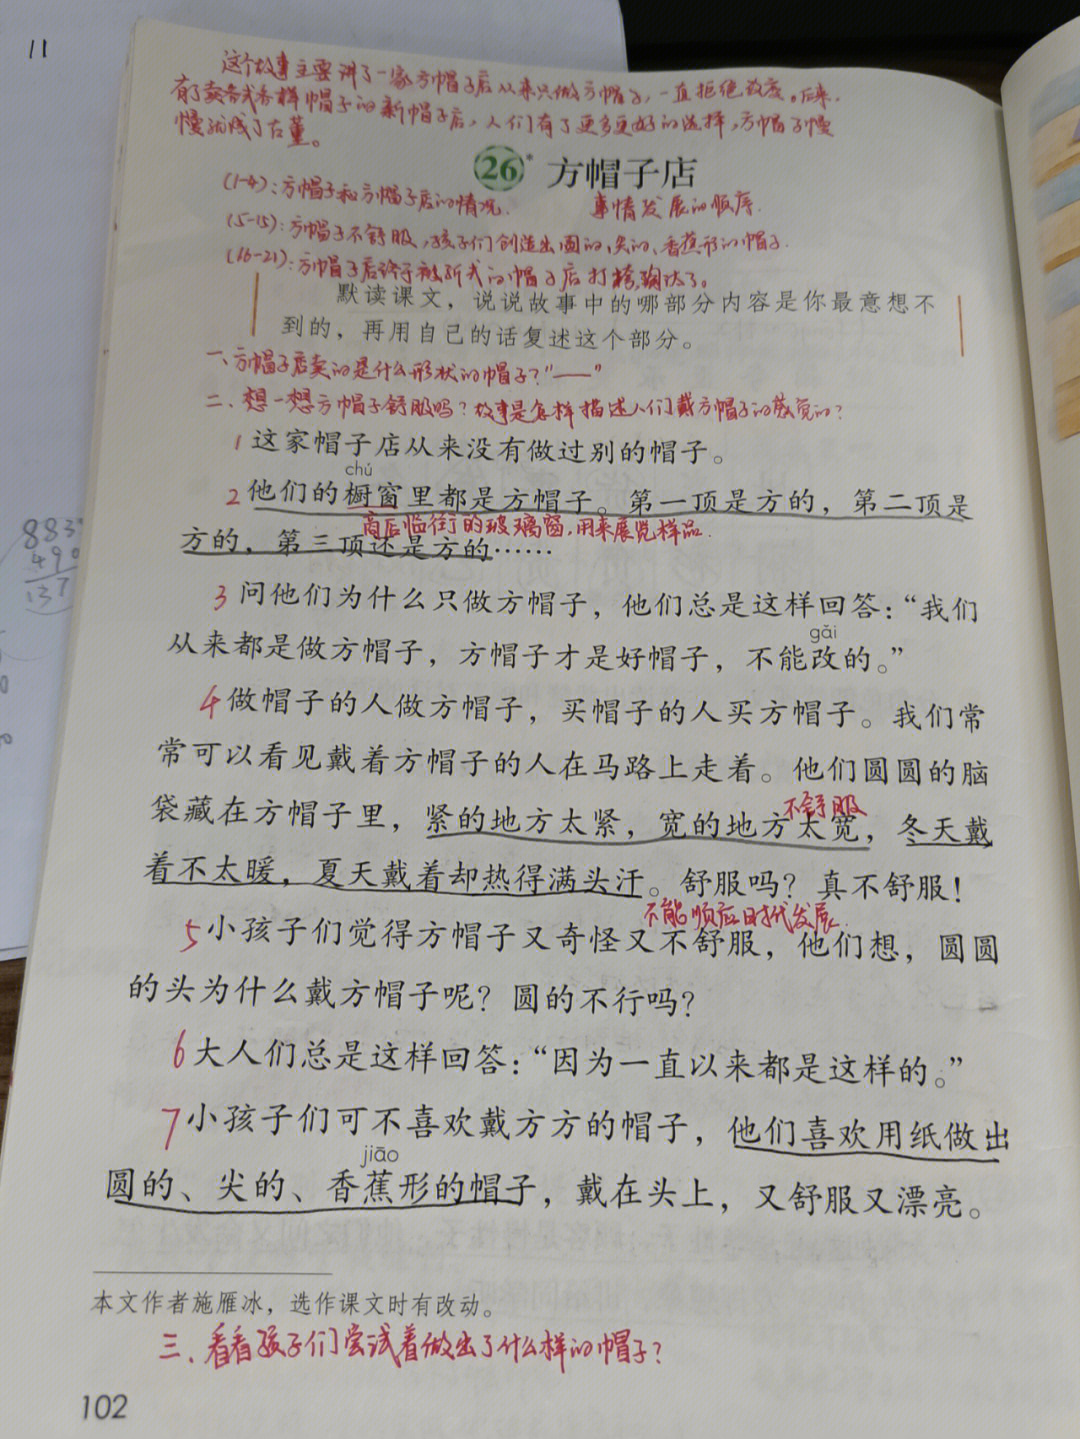 11
这个故事主要讲了一家方帽子店从来只做方帽子，一直拒绝改变。后来，
有了卖各式各样帽子的新帽子店，人们有了更多更好的选择，方帽子慢
慢就成了古董。
26* 方帽子店
(1-4)：方帽子和方帽子店的情况. 事情发展的顺序.
(5-15)：方帽子不舒服，孩子们创造出圆的、尖的、香蕉形的帽子.
(16-21)：方帽子店终于被新式的帽子店打
默读课文，说说故事中的哪部分内容是你最意想不
到的，再用自己的话复述这个部分。
一、方帽子店卖的是什么形状的帽子？“——”
二、想一想方帽子舒服吗？故事是怎样描述人们戴方帽子的感觉的？
1 这家帽子店从来没有做过别的帽子。
chú
2 他们的橱窗里都是方帽子。第一顶是方的，第二顶是
商店临街的玻璃窗，用来展览样品.
方的，第三顶还是方的……
3 问他们为什么只做方帽子，他们总是这样回答：“我们
gǎi
从来都是做方帽子，方帽子才是好帽子，不能改的。”
4 做帽子的人做方帽子，买帽子的人买方帽子。我们常
常可以看见戴着方帽子的人在马路上走着。他们圆圆的脑
不舒服
袋藏在方帽子里，紧的地方太紧，宽的地方太宽，冬天戴
着不太暖，夏天戴着却热得满头汗。舒服吗？真不舒服！
不能顺应时代发展.
5 小孩子们觉得方帽子又奇怪又不舒服，他们想，圆圆
的头为什么戴方帽子呢？圆的不行吗？
6 大人们总是这样回答：“因为一直以来都是这样的。”
7 小孩子们可不喜欢戴方方的帽子，他们喜欢用纸做出
jiāo
圆的、尖的、香蕉形的帽子，戴在头上，又舒服又漂亮。
本文作者施雁冰，选作课文时有改动。
三、看看孩子们尝试着做出了什么样的帽子？
102
883
490
137